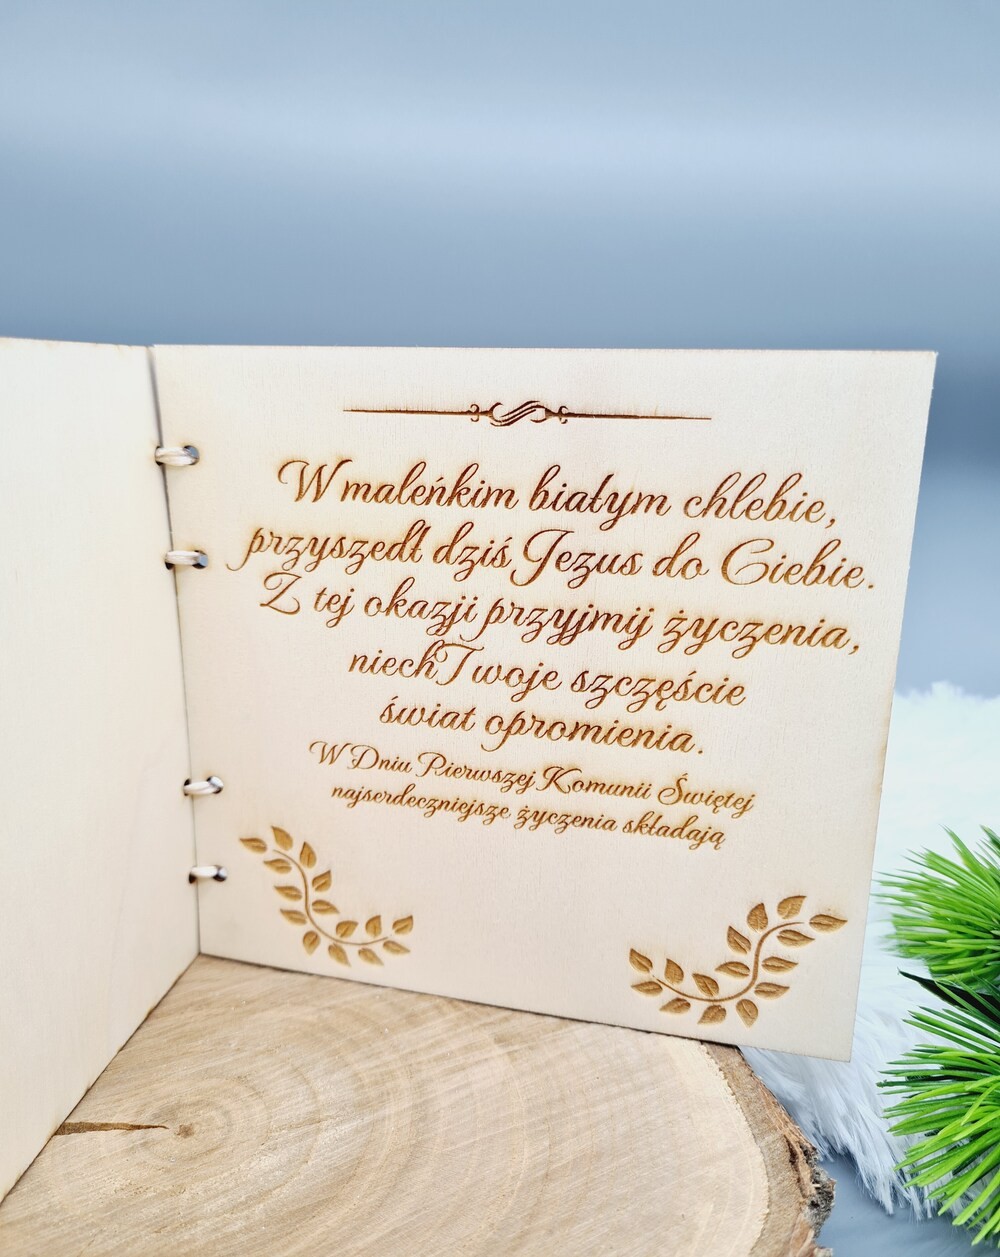 W maleńkim białym chlebie,
przyszedł dziś Jezus do Ciebie.
Z tej okazji przyjmij życzenia,
niech Twoje szczęście
świat opromienia.
W Dniu Pierwszej Komunii Świętej
najserdeczniejsze życzenia składają